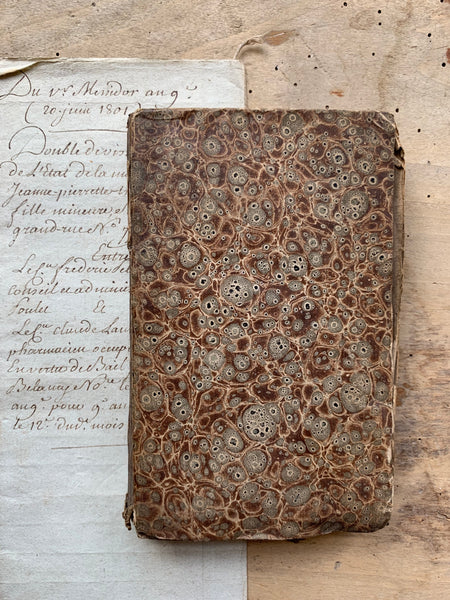 Du 1er Messidor an 9e
(20 juin 1801)
Double devis
de L'état de la m
Jeanne-pierrette
fille mineure,
grand-rue No.
Entre
Le Cn. frederic
conseil et admini
Et
Le Cn. claude Lau
pharmacien occup
En vertu de Bail
Belamy Nore. Le
an 9e. pour 9 an
le 12e. dudt. mois